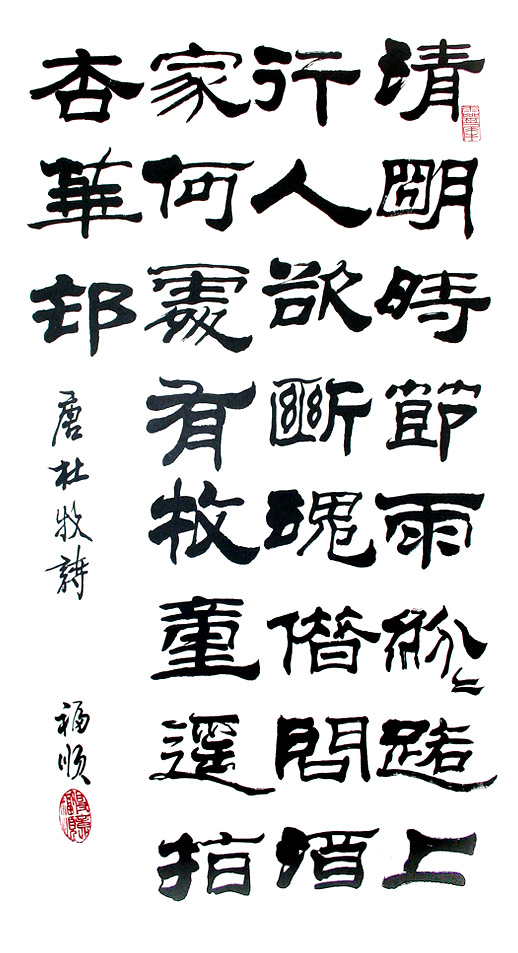 清朙時節雨紛々路上
行人欲斷魂借問酒
家何處有牧童遙指
杏華邨
唐杜牧詩
福順